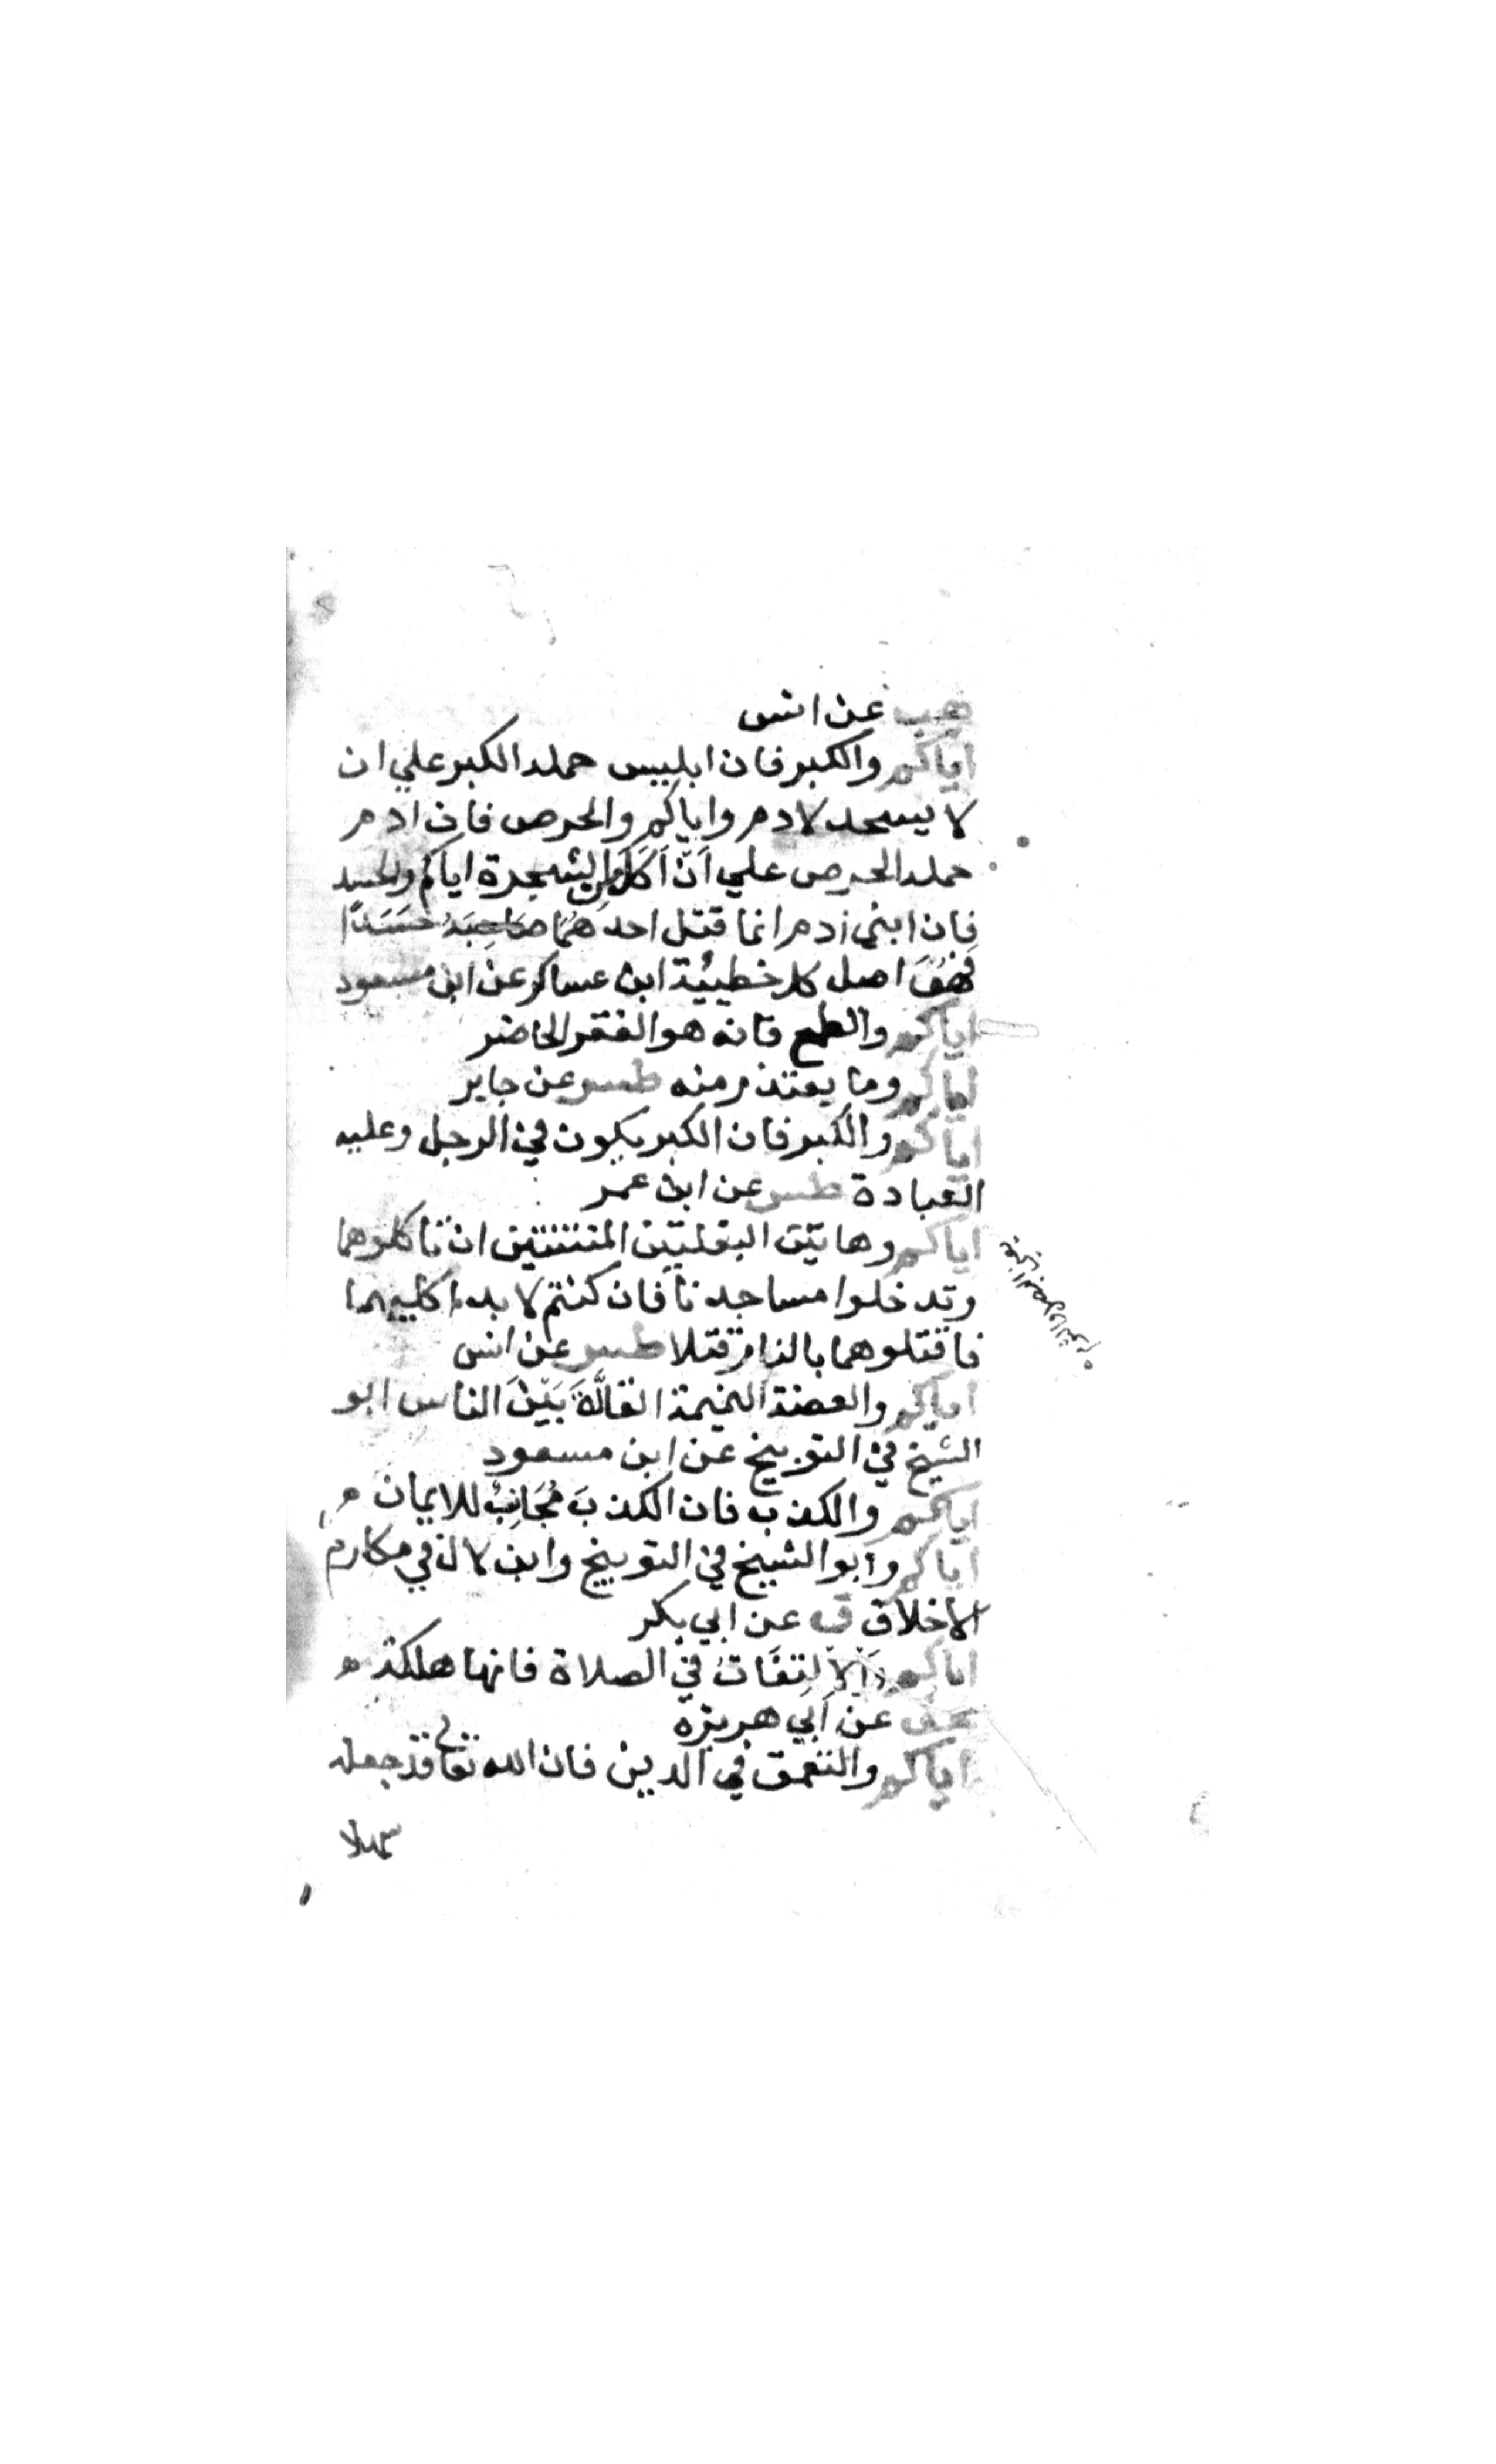 هب عن انس
اياكم والكبر فان ابليس حمله الكبر علي ان
لا يسجد لادم واياكم والحرص فان ادم
حمله الحرص علي اَنْ اَكَلَ من الشجرة اياكم والحسد
فان ابني ادم انما قتل احدهُمَا صَاحِبَهُ حَسَدًا
فَهُوَ اصل كل خطيئة ابن عساكر عن ابن مسعود
اياكم والطمع فانه هو الفقر الحاضر
اياكم وما يعتذر منه طس عن جابر
اياكم والكبر فان الكبر يكون في الرجل وعليه
العباءة طس عن ابن عمر
اياكم وهاتين البقلتين المنتنتين ان تاكلوهما
وتدخلوا مساجدنا فان كنتم لا بد اكليهما
فاقتلوهما بالنار قتلا طس عن انس
اياكم والعضة النميمة القالَّة بَيْنَ الناس ابو
الشيخ في التوبيخ عن ابن مسعود
اياكم والكذب فان الكذبَ مُجَانِبٌ للايمان م
اياكم وابو الشيخ في التوبيخ وابن لال في مكارم
الاخلاق عن ابي بكر
اياكم وَالاِلتِفَاتَ في الصلاة فانها هلكة م
عق عن اَبي هريرة
اياكم والتعمق في الدين فان الله تعالى قد جعله
سهلا